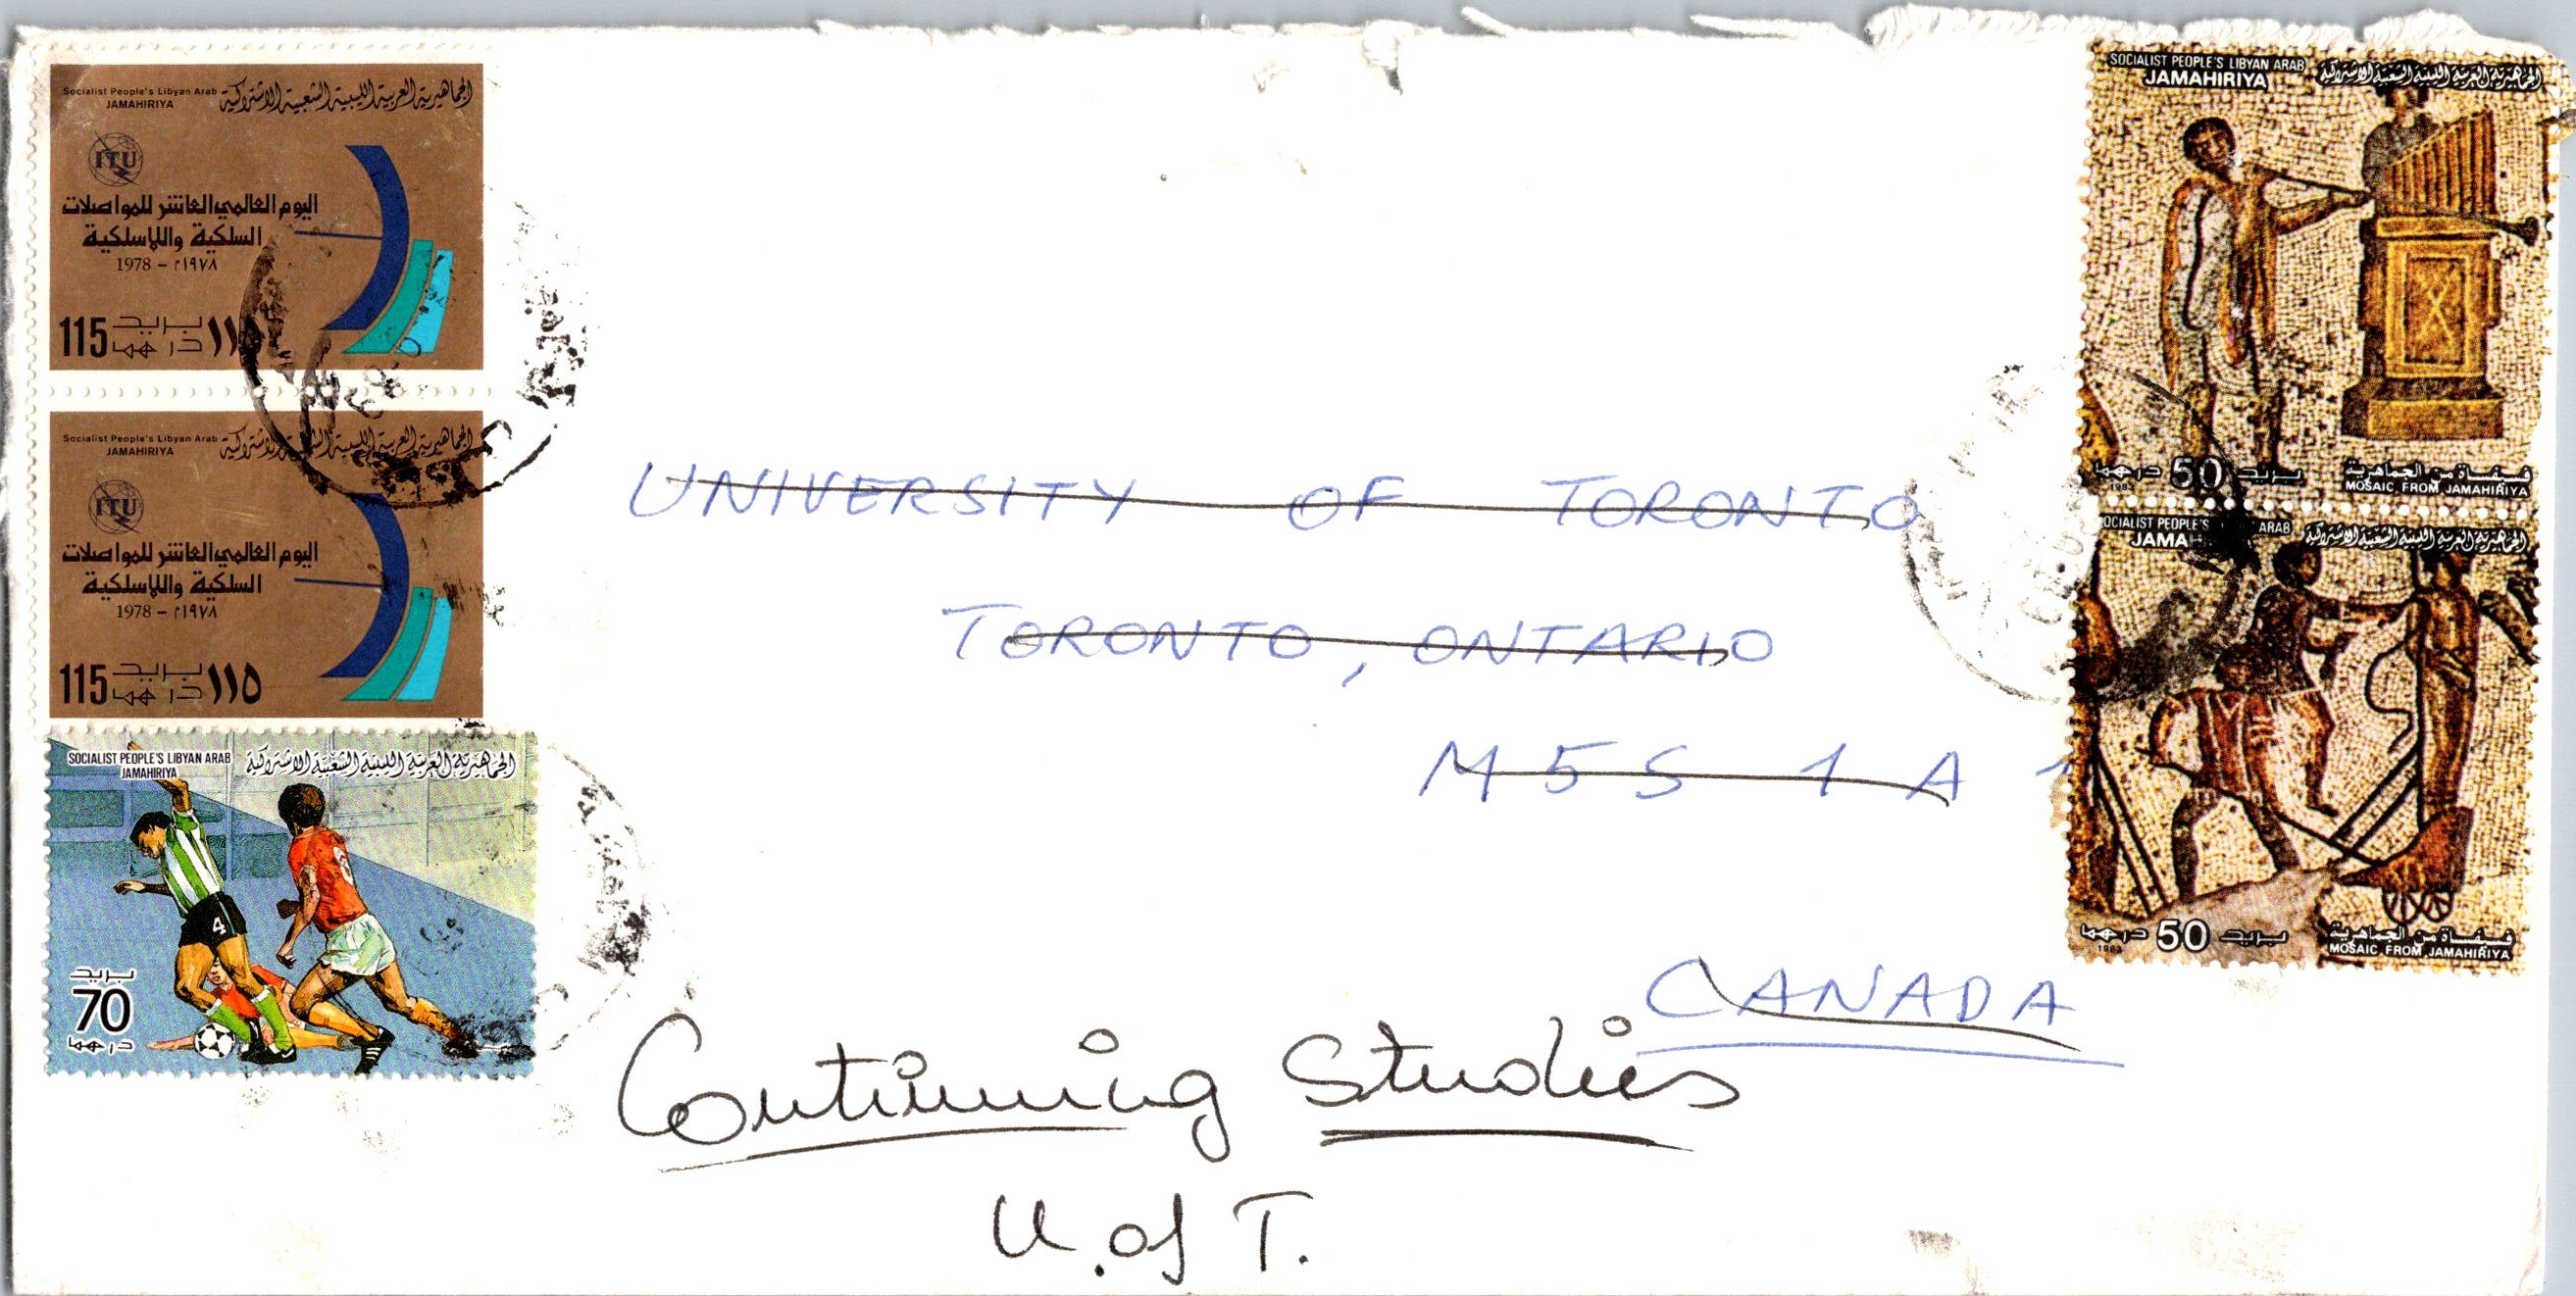 Socialist People's Libyan Arab
JAMAHIRIYA
الجماهيرية العربية الليبية الشعبية الاشتراكية
ITU
اليوم العالمي العاشر للمواصلات
السلكية واللاسلكية
1978 – ١٩٧٨م
115 بريد درهما ١١٥
Socialist People's Libyan Arab
JAMAHIRIYA
الجماهيرية العربية الليبية الشعبية الاشتراكية
ITU
اليوم العالمي العاشر للمواصلات
السلكية واللاسلكية
1978 – ١٩٧٨م
115 بريد درهما ١١٥
SOCIALIST PEOPLE'S LIBYAN ARAB
JAMAHIRIYA
الجماهيرية العربية الليبية الشعبية الاشتراكية
6
4
بريد
70
درهما
SOCIALIST PEOPLE'S LIBYAN ARAB
JAMAHIRIYA
الجماهيرية العربية الليبية الشعبية الاشتراكية
درهما 50 بريد
1983
فسيفساة من الجماهيرية
MOSAIC FROM JAMAHIRIYA
SOCIALIST PEOPLE'S ARAB
JAMA
الجماهيرية العربية الليبية الشعبية الاشتراكية
درهما 50 بريد
1983
فسيفساة من الجماهيرية
MOSAIC FROM JAMAHIRIYA
UNIVERSITY OF TORONTO
TORONTO, ONTARIO
M5S 1A1
CANADA
Continuing Studies
U. of T.